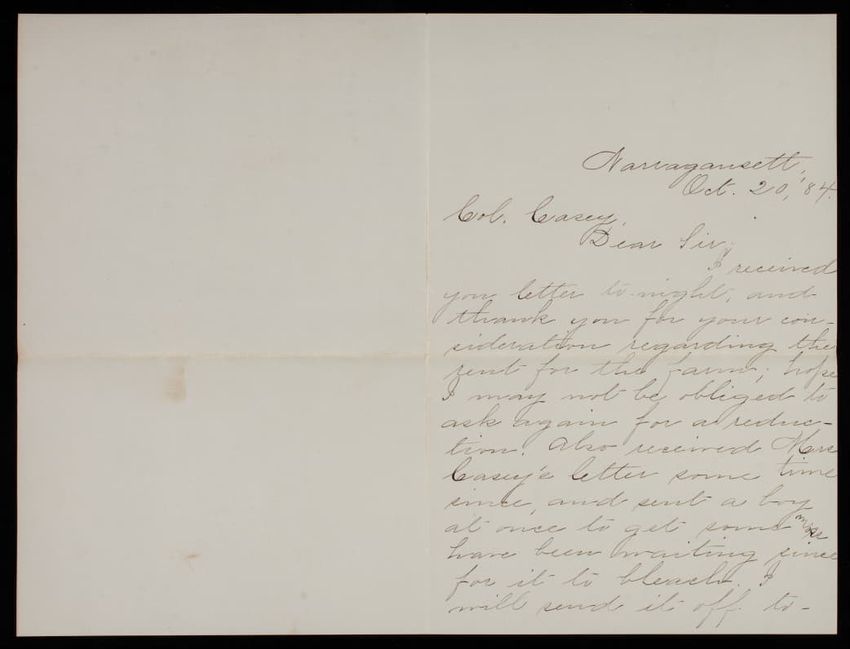 Narragansett,
Oct. 20, '84.
Col. Casey,
Dear Sir;
I received
you letter to-night, and
thank you for your con-
sideration regarding the
rent for the farm; hope
I may not be obliged to
ask again for a reduc-
tion. Also received Mrs
Casey's letter some time
since, and sent a boy
at once to get some moss
have been waiting since
for it to bleach. I
will send it off to-